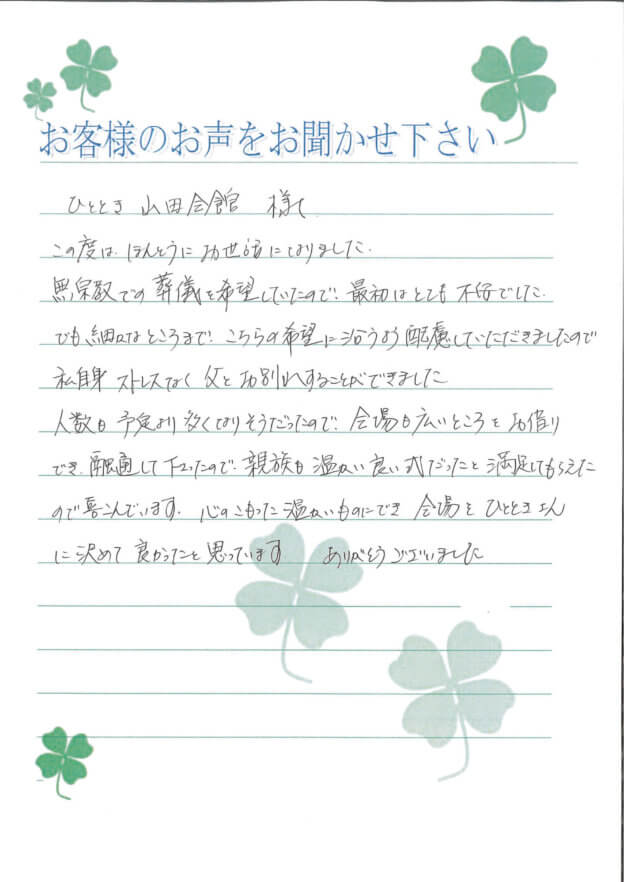 お客様のお声をお聞かせ下さい
ひととき 山田会館 様て
この度は、ほんとうにお世話になりました。
無宗教での葬儀を希望していたので、最初はとても不安でした。
でも、細かなところまで、こちらの希望に沿うよう配慮していただきましたので
私自身 ストレスなく 父とお別れすることができました
人数も予定より多くなりそうだったので、会場も広いところをお借り
でき、融通して下さったので、親族も温かい良い式だったと満足してもらえた
ので喜こんでいます。心のこもった温かいものにでき 会場をひとときさん
に決めて良かったと思っています ありがとうございました